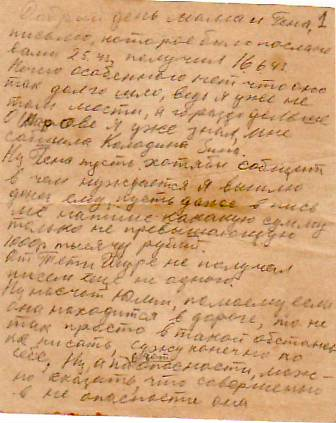 Добрый день мама и Гена, 1
письмо, которое было послано
вами 25.43, получил 16.6.43г.
Ничего особенного нет что оно
так долго шло, ведь я уже не
том месте, а гораздо дальше
О Шарове я уже знал, мне
сообщила Колодина Зина.
Ну Гена пусть хотя бы сообщит
в чем нуждается я вышлю
денег ему, пусть даже в пись
ме напишет какую сумму
только не превышающую
1000р тысячу рублей.
От Тети Шуре не получал
писем еще ни одного.
Ну насчет Юлии, помоему если
она находится в дороге, то не
так просто в такой обстанов
ке писать сужу конечно по
себе, Ну, а насчет опасности, мож-
но сказать, что совершенно
в не опасности она